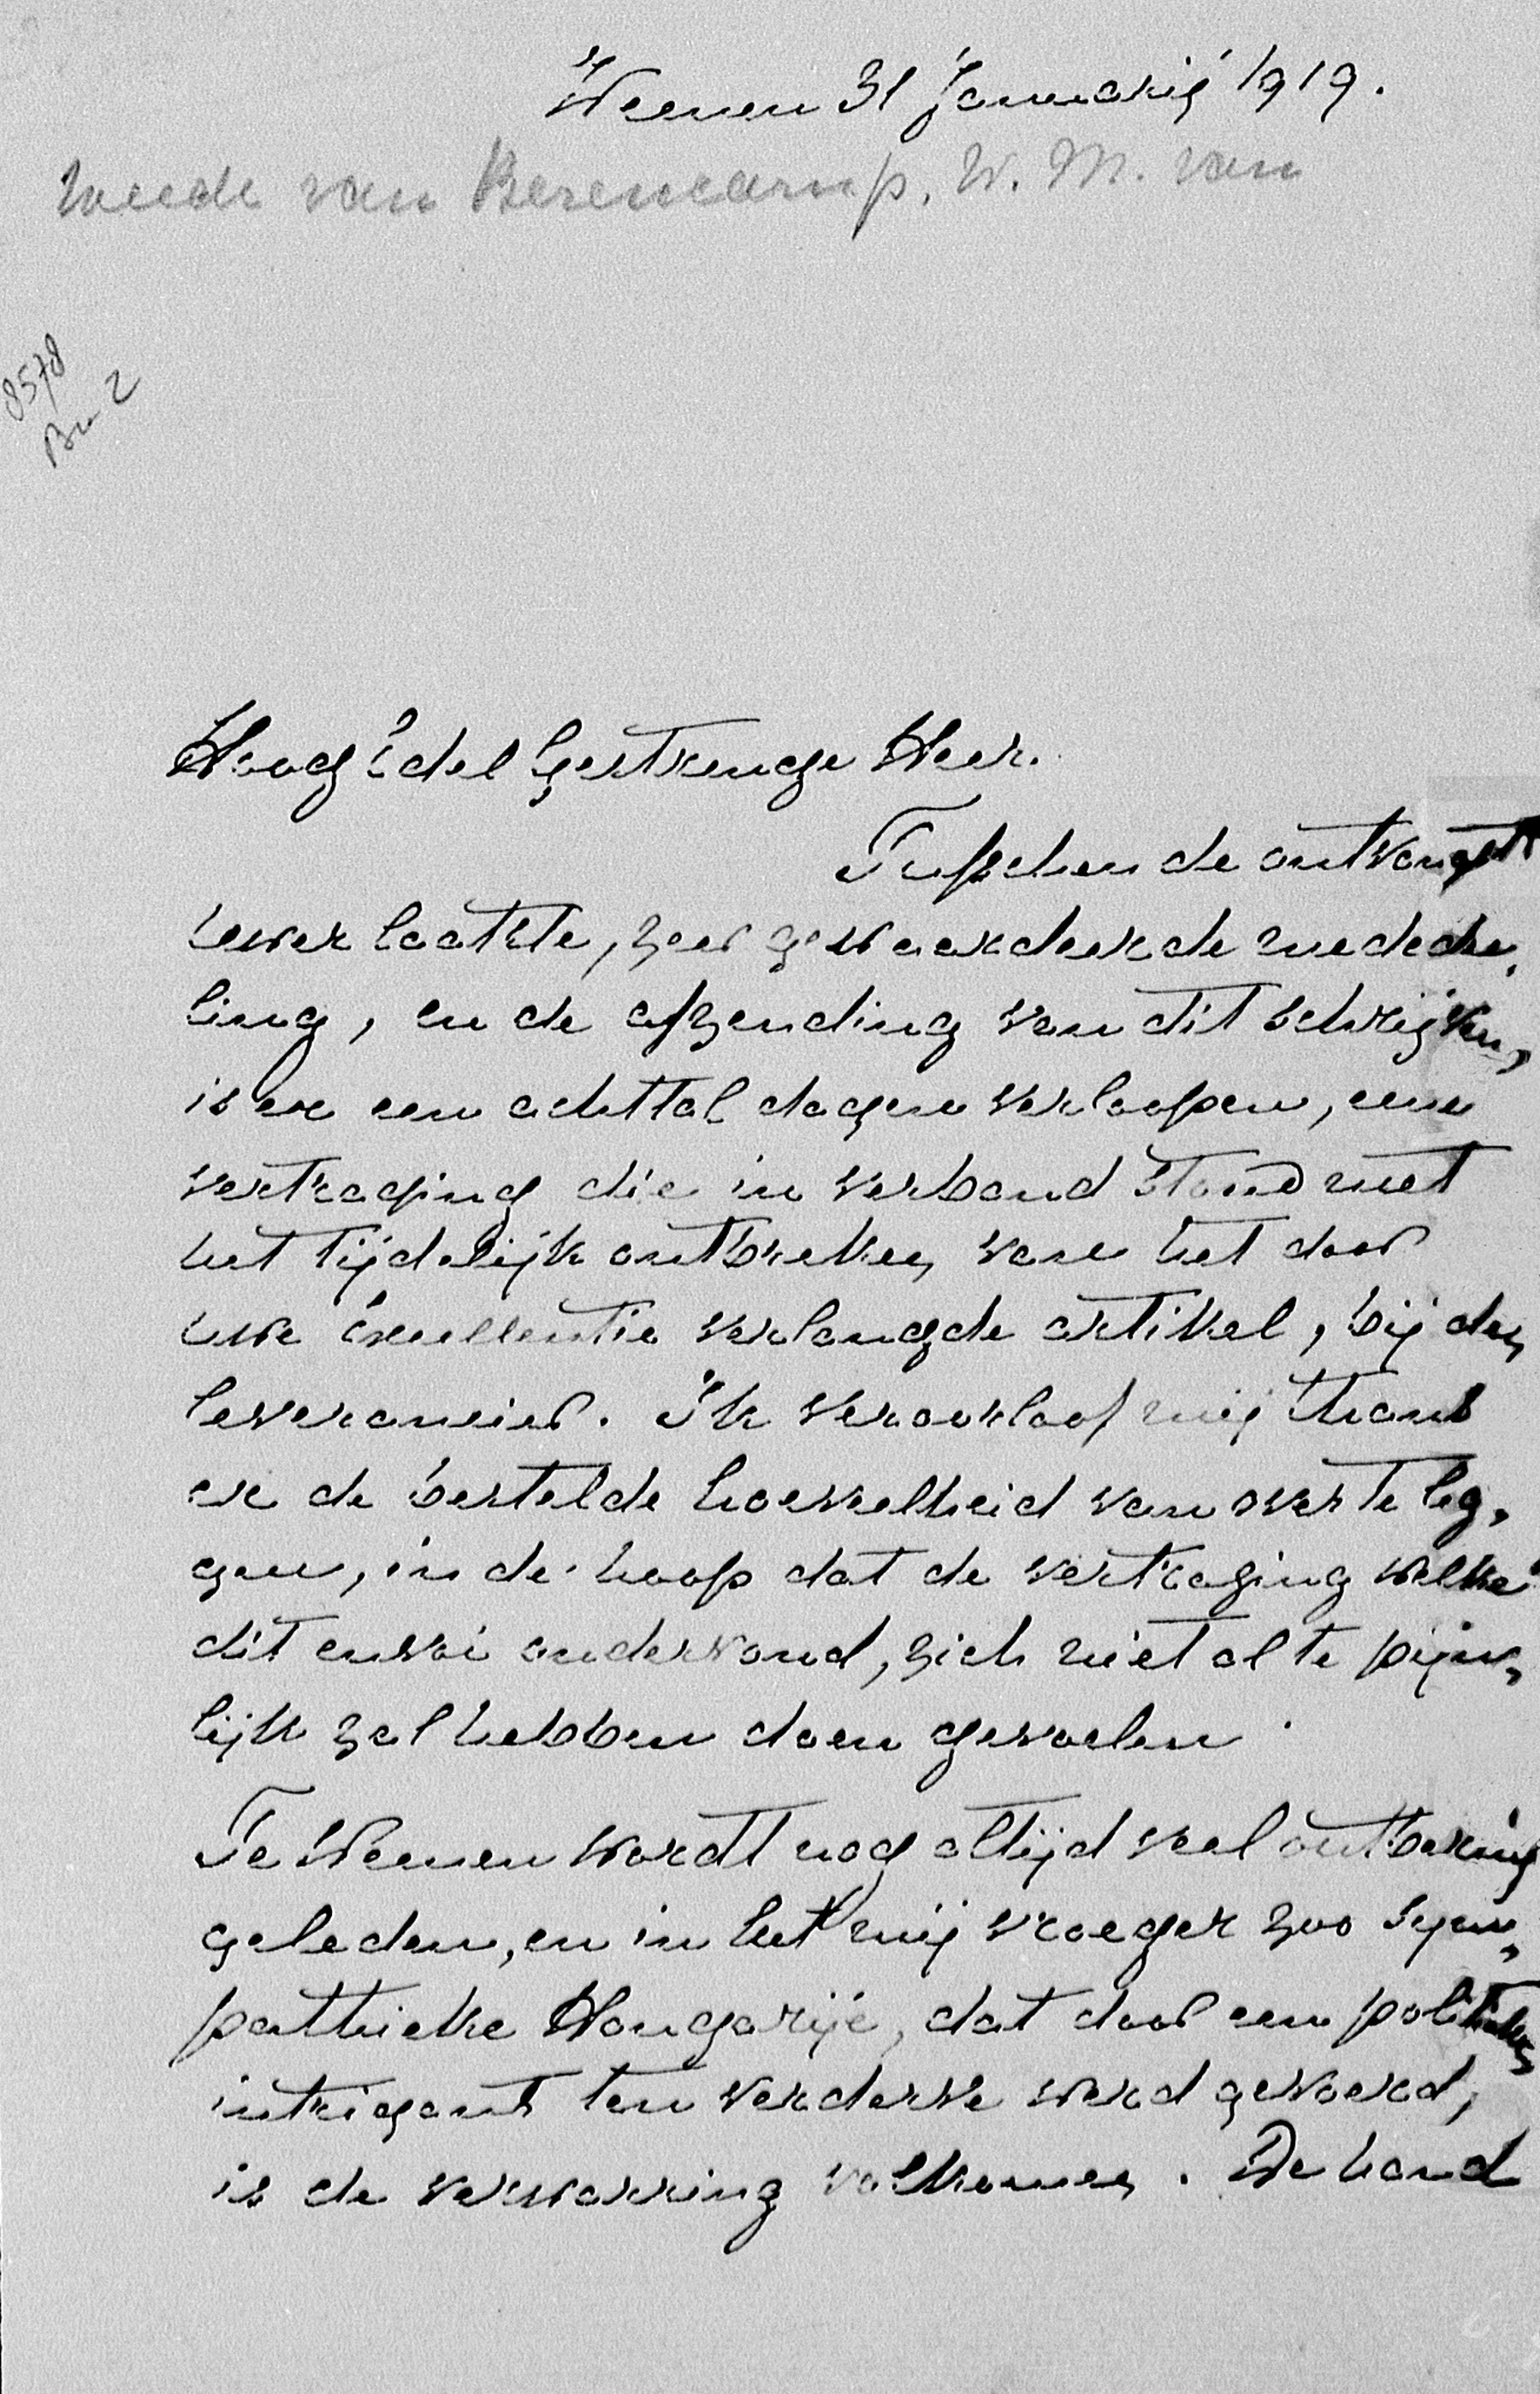 Weenen 31 Januarij 1919.
Weede van Berencamp, W. M. van
8578
Bu 2
Hoog Edel Gestrenge Heer.
Tusschen de ontvangst
uwer laatste, zeer gewaardeerde mededee„
ling, en de afzending van dit schrijven,
is er een achttal dagen verloopen, eene
vertraging die in verband stond met
het tijdelijk ontbreken van het door
uwe Excellentie verlangde artikel, bij den
leverancier. Ik veroorloof mij thans
er de bestelde hoeveelheid van over te leg„
gen, in de hoop dat de vertraging welke
dit envoi ondervond, zich niet al te pijn„
lijk zal hebben doen gevoelen.
Te Weenen wordt nog altijd veel ontbering
geleden, en in het mij vroeger zoo sym„
pathieke Hongarije, dat door een politieken
intrigant ten verderve werd gevoerd,
is de verwarring volkomen. De hand